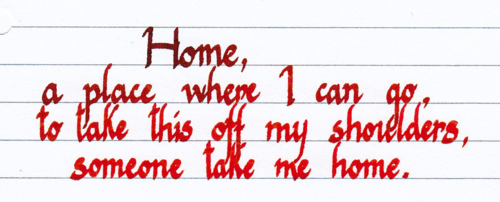 Home,
a place where I can go,
to take this off my shoulders,
someone take me home.